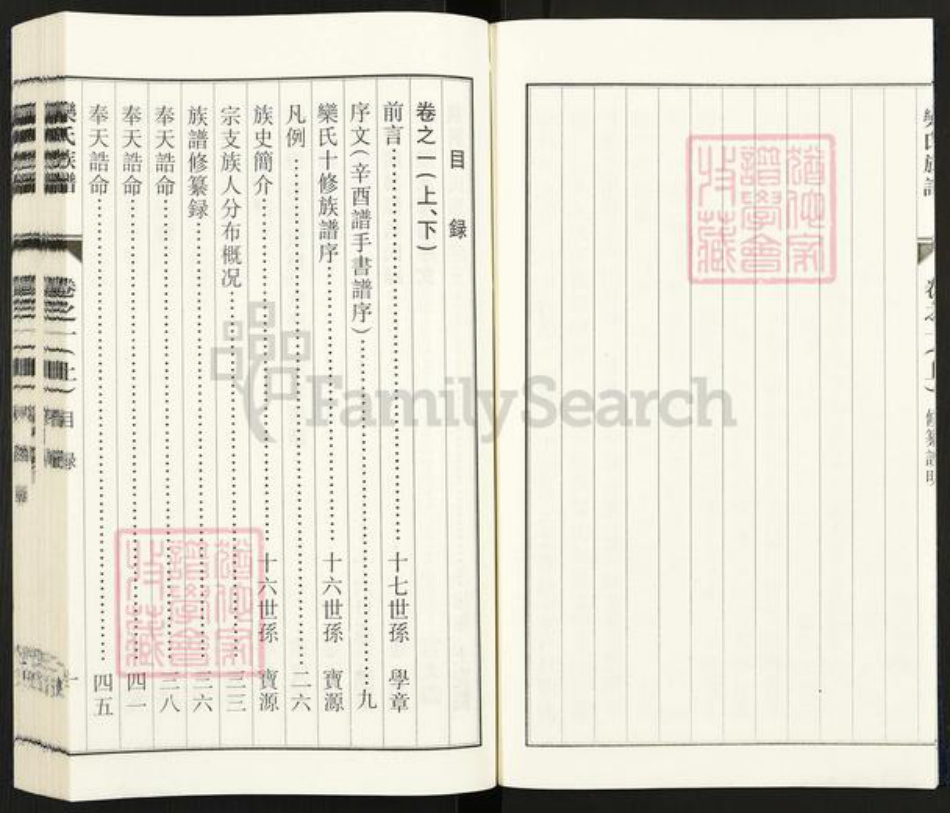 欒氏族譜 卷之一(上) 修纂說明
猶他家譜學會收藏
目録
卷之一(上、下)
前言……十七世孫 學章
序文(辛酉譜手書譜序)……九
欒氏十修族譜序……十六世孫 寶源
凡例……二六
族史簡介……十六世孫 寶源
宗支族人分布概况……三三
族譜修纂録……三六
奉天誥命……三八
奉天誥命……四一
奉天誥命……四五
欒氏族譜 卷之一(上) 目録 一
猶他家譜學會收藏
FamilySearch